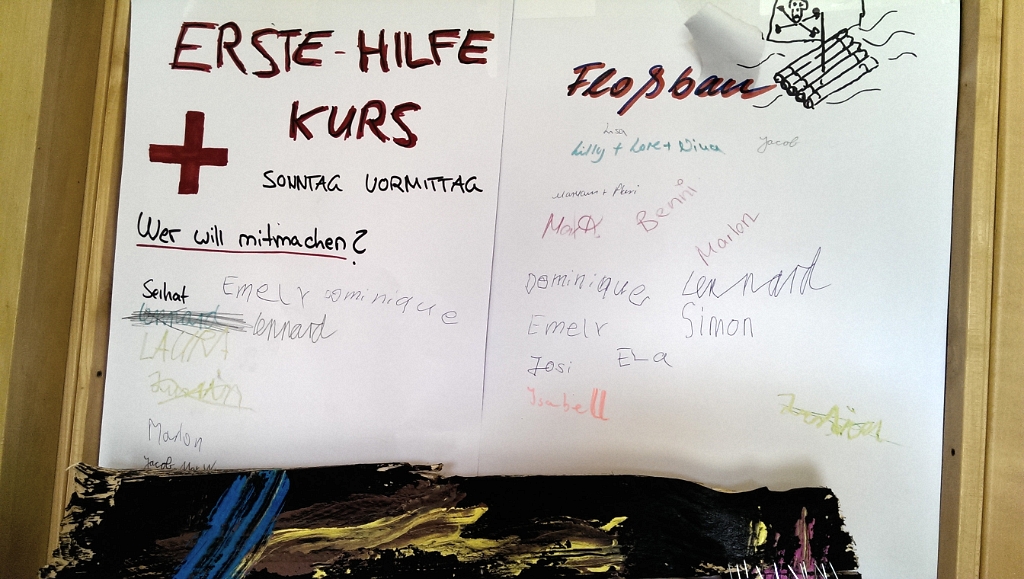 ERSTE-HILFE
KURS
SONNTAG VORMITTAG
Wer will mitmachen?
Seihat Emely Dominique
Lennard Lennard
LAURA
Marlon
Jacob Max W
Floßbau
Lisa
Lilly + Lore + Nina Jacob
Max Benni
Marlon
Dominique Lennard
Emely Simon
Josi Ela
Isabell